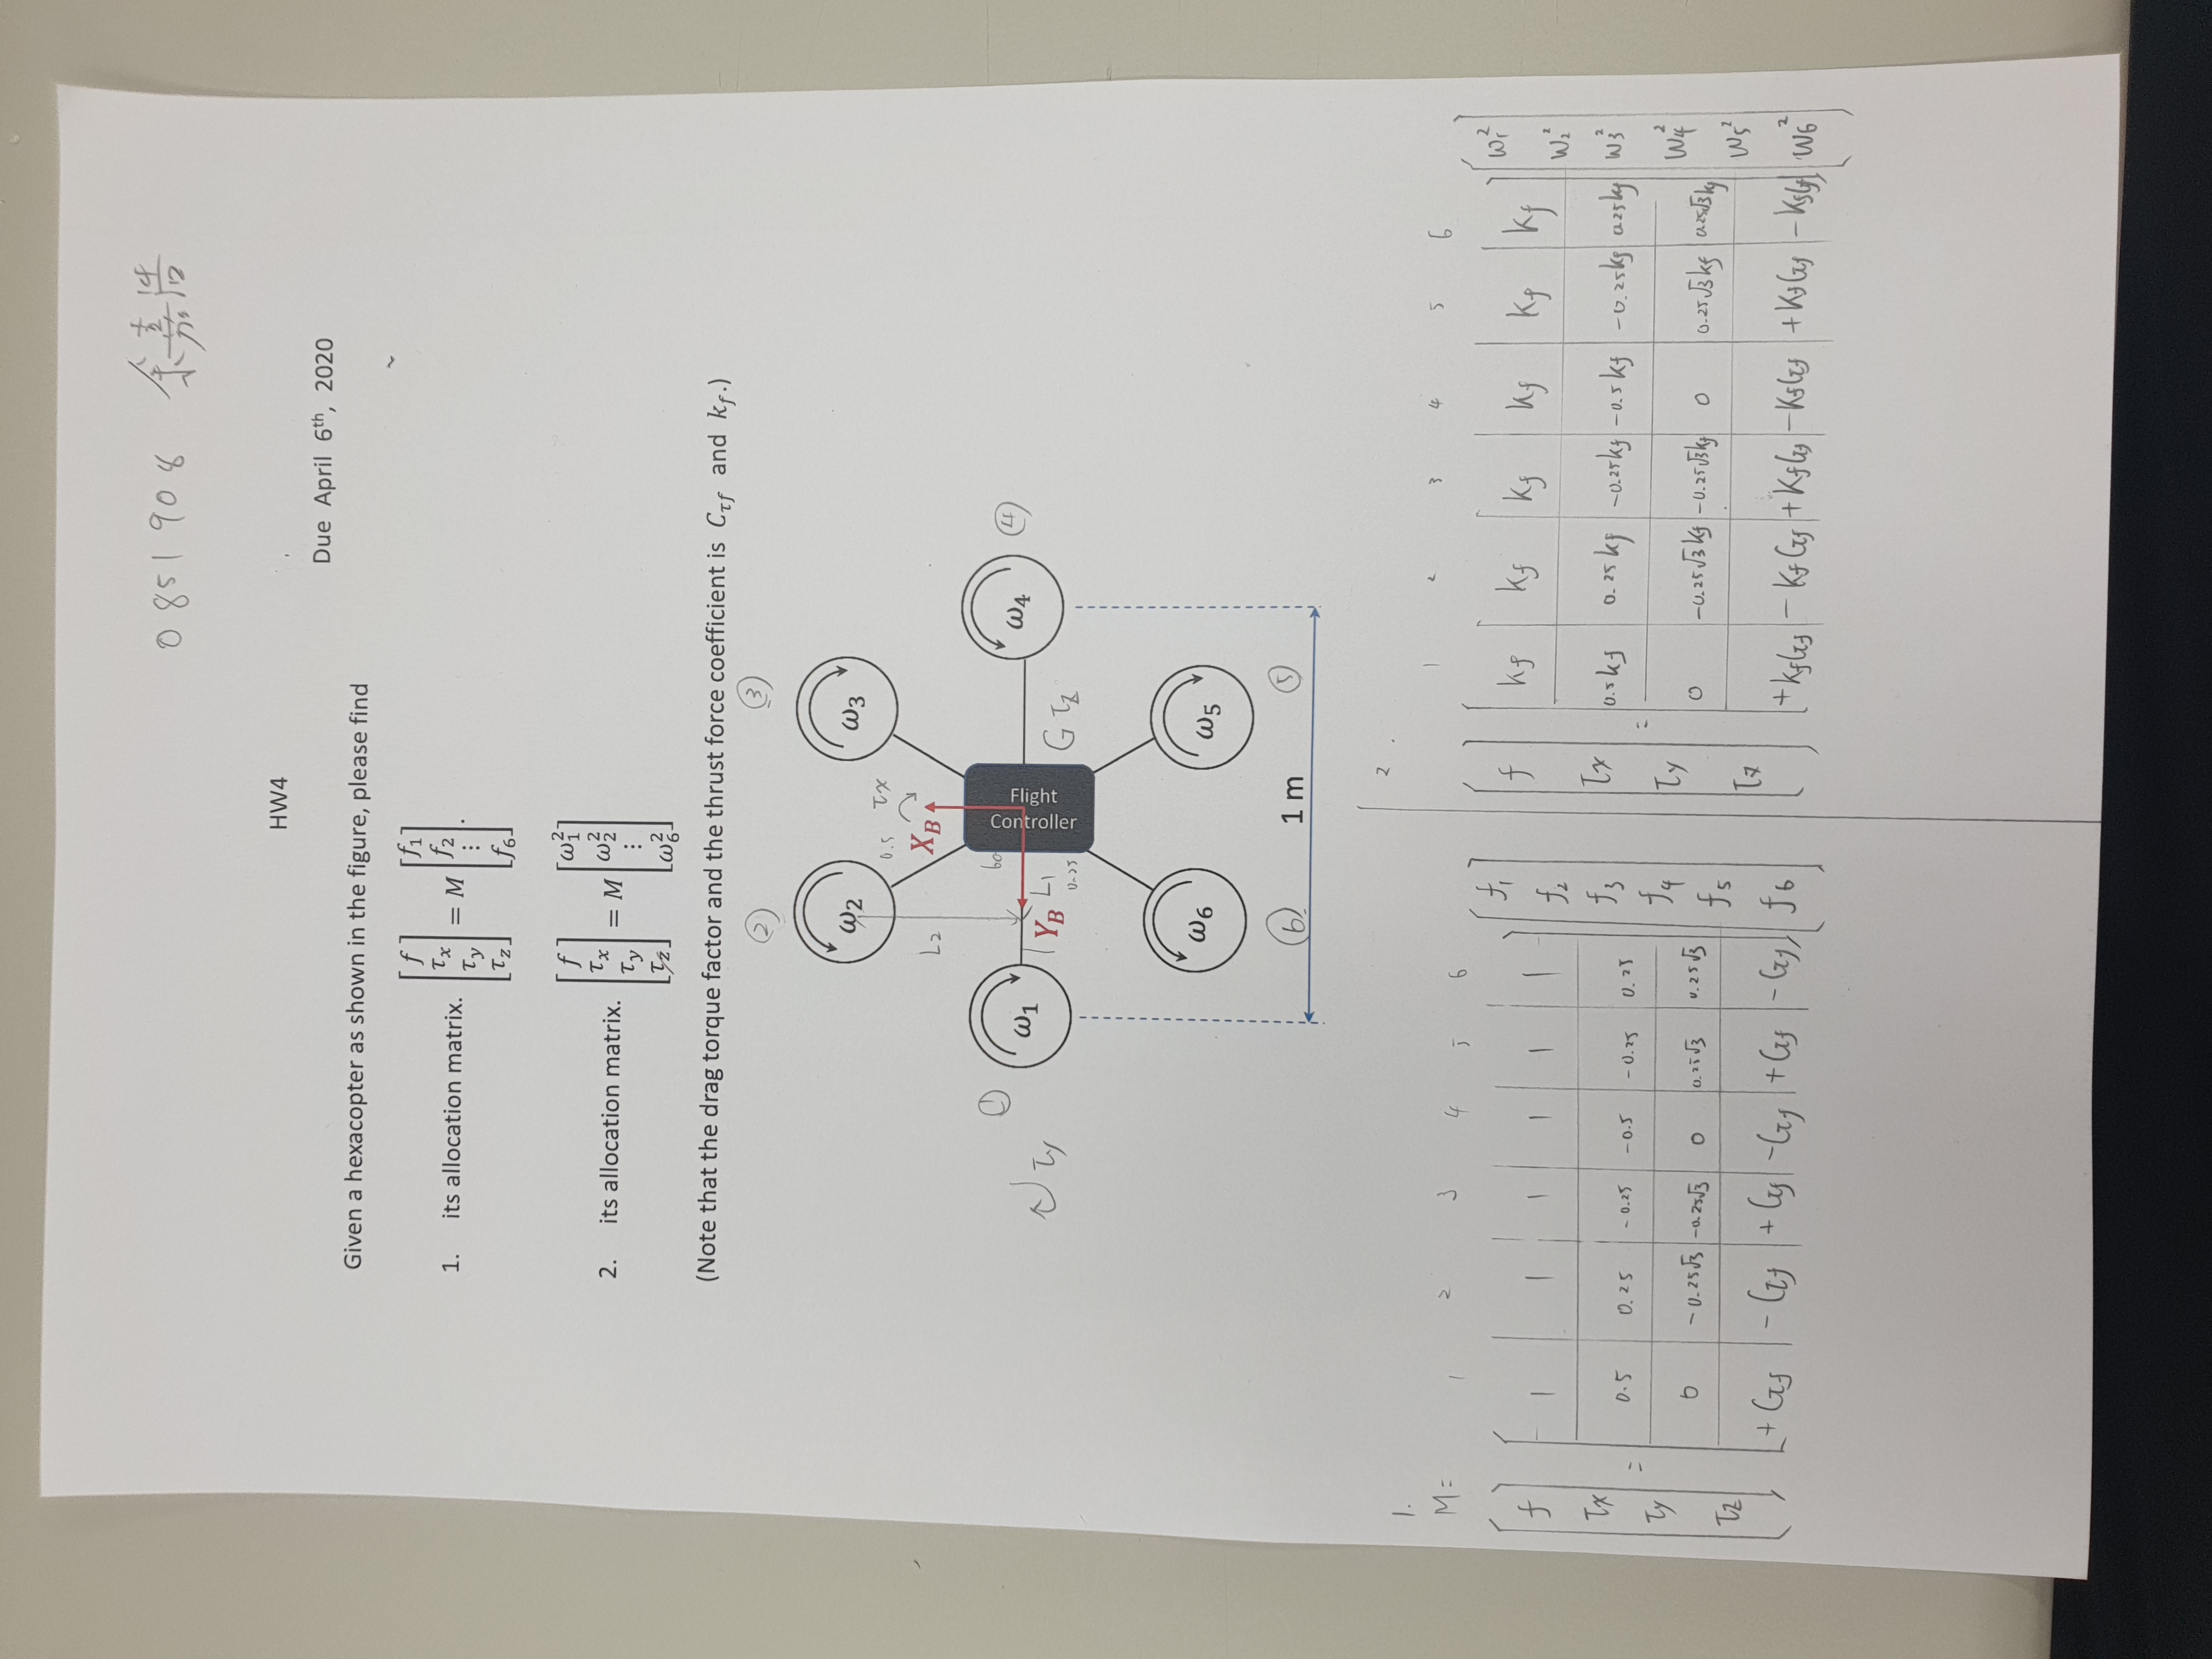 0851908 余嘉浩
HW4
Due April 6th, 2020
Given a hexacopter as shown in the figure, please find
1. its allocation matrix. [f τx τy τz] = M [f1 f2 ⋮ f6].
2. its allocation matrix. [f τx τy τz] = M [ω1² ω2² ⋮ ω6²]
(Note that the drag torque factor and the thrust force coefficient is Cτf and kf.)
② ③
ω2 ω3
0.5 τx
L2 XB
① 60 ④
ω1 Flight Controller ω4
τy YB L1 τz
0.25
ω6 ω5
⑥ 1 m ⑤
1.
M=
1 2 3 4 5 6
f 1 1 1 1 1 1 f1
f2
τx 0.5 0.25 -0.25 -0.5 -0.25 0.25 f3
τy = 0 -0.25√3 -0.25√3 0 0.25√3 0.25√3 f4
f5
τz +Cτf -Cτf +Cτf -Cτf +Cτf -Cτf f6
2.
1 2 3 4 5 6
f kf kf kf kf kf kf ω1²
ω2²
τx 0.5kf 0.25kf -0.25kf -0.5kf -0.25kf 0.25kf ω3²
τy = 0 -0.25√3kf -0.25√3kf 0 0.25√3kf 0.25√3kf ω4²
ω5²
τz +kfCτf -kfCτf +kfCτf -kfCτf +kfCτf -kfCτf ω6²